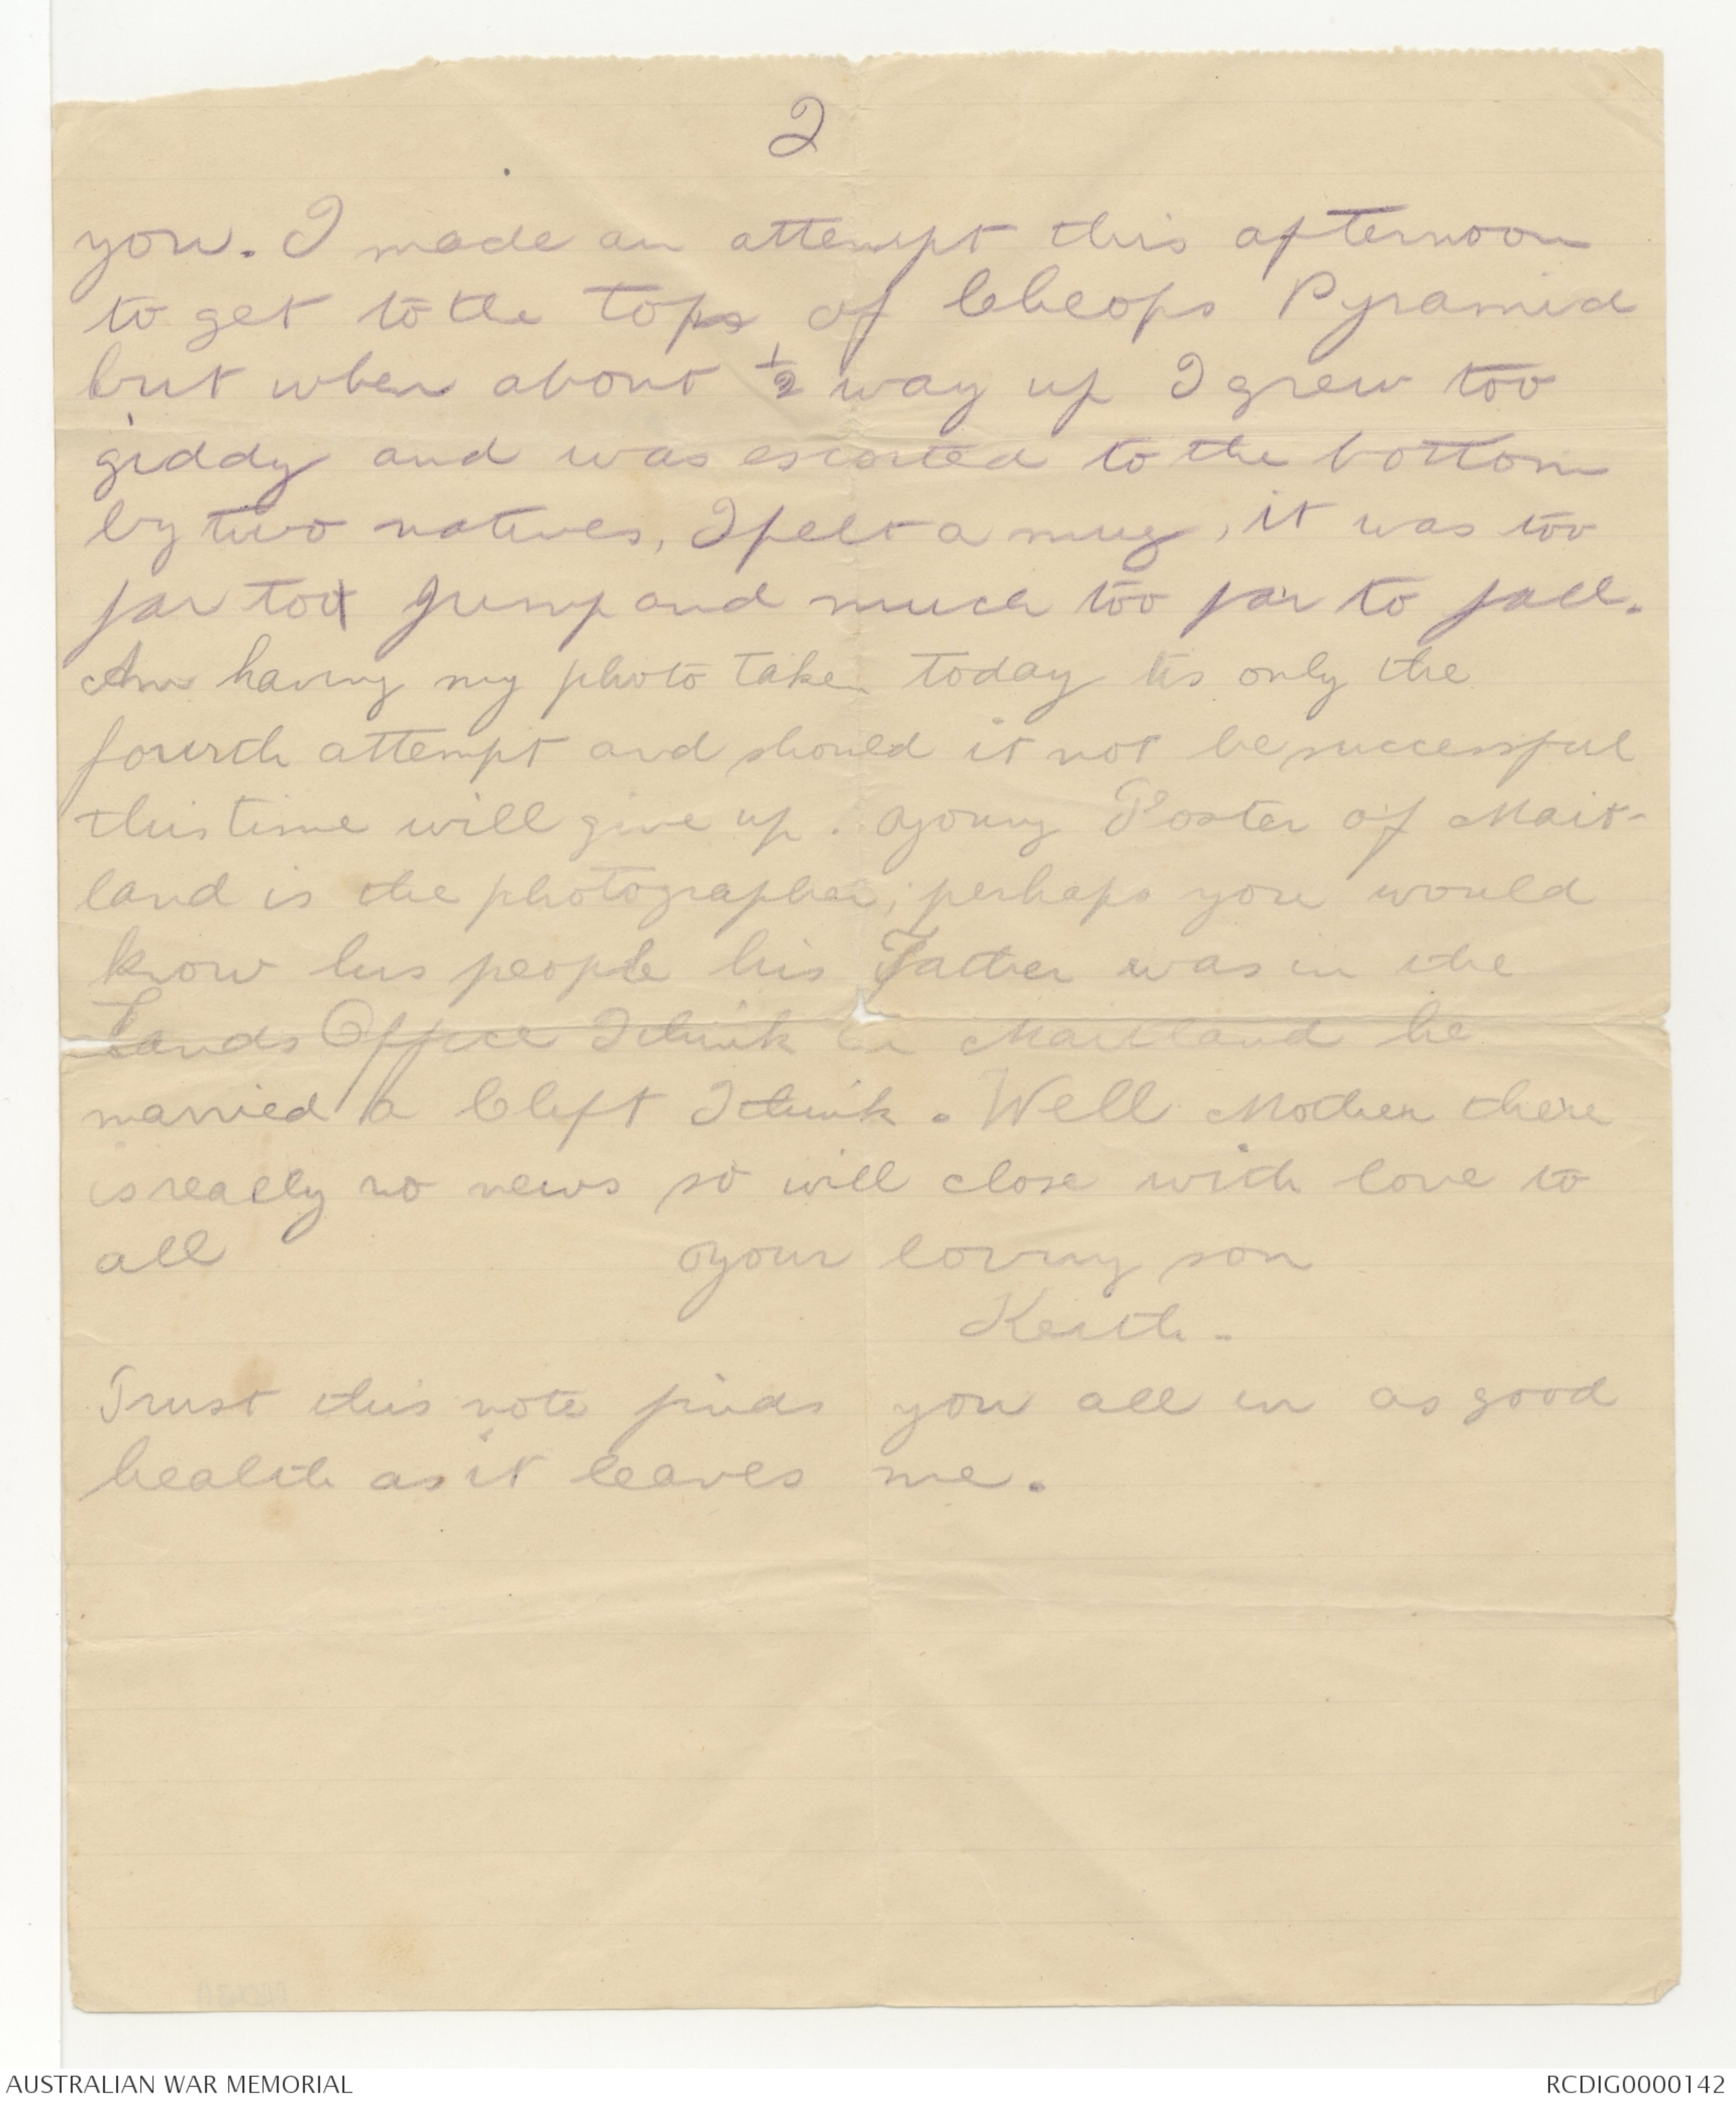 2
you. I made an attempt this afternoon
to get to the top of Cheops Pyramid
but when about ½ way up I grew too
giddy and was escorted to the bottom
by two natives, I felt a mug, it was too
far to jump and much too far to fall.
Am having my photo taken today tis only the
fourth attempt and should it not be successful
this time will give up. Young Poster of Mait-
land is the photographer; perhaps you would
know his people his Father was in the
Lands Office I think in Maitland he
married a Clift I think. Well Mother there
is really no news so will close with love to
all Your loving son
Keith.
Trust this note finds you all in as good
health as it leaves me.
AUSTRALIAN WAR MEMORIAL
RCDIG0000142